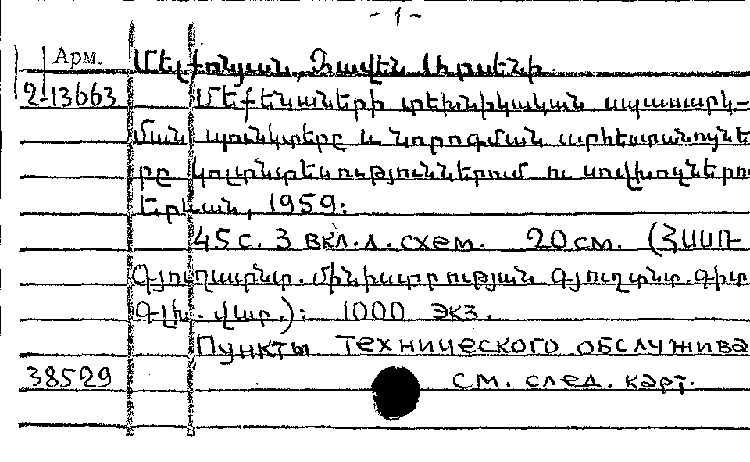 - 1 -
Арм.
Մելքոնյան, Զավեն Արսենի
2-13663
Մեքենաների տեխնիկական սպասարկ-
ման պունկտերը և նորոգման արհեստանոցնե
րը կոլտնտեսություններում ու սովխոզներու
Երևան, 1959:
45 с. 3 вкл. л. схем. 20 см. (ՀՍՍՌ
Գյուղատնտ. մինիստրության գյուղտնտ. գիտ
Գլխ. վար.): 1000 экз.
Пункты технического обслужива
38529
см. след. карт.